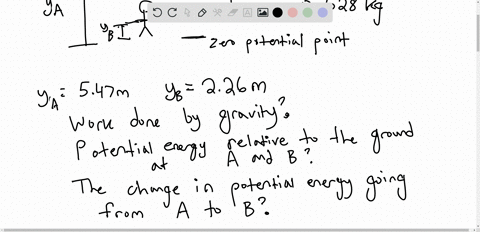 yA
28 kg
yB
zero potential point
yA = 5.47m yB = 2.26 m
Work done by gravity?
Potential energy relative to the ground
at A and B?
The change in potential energy going
from A to B?